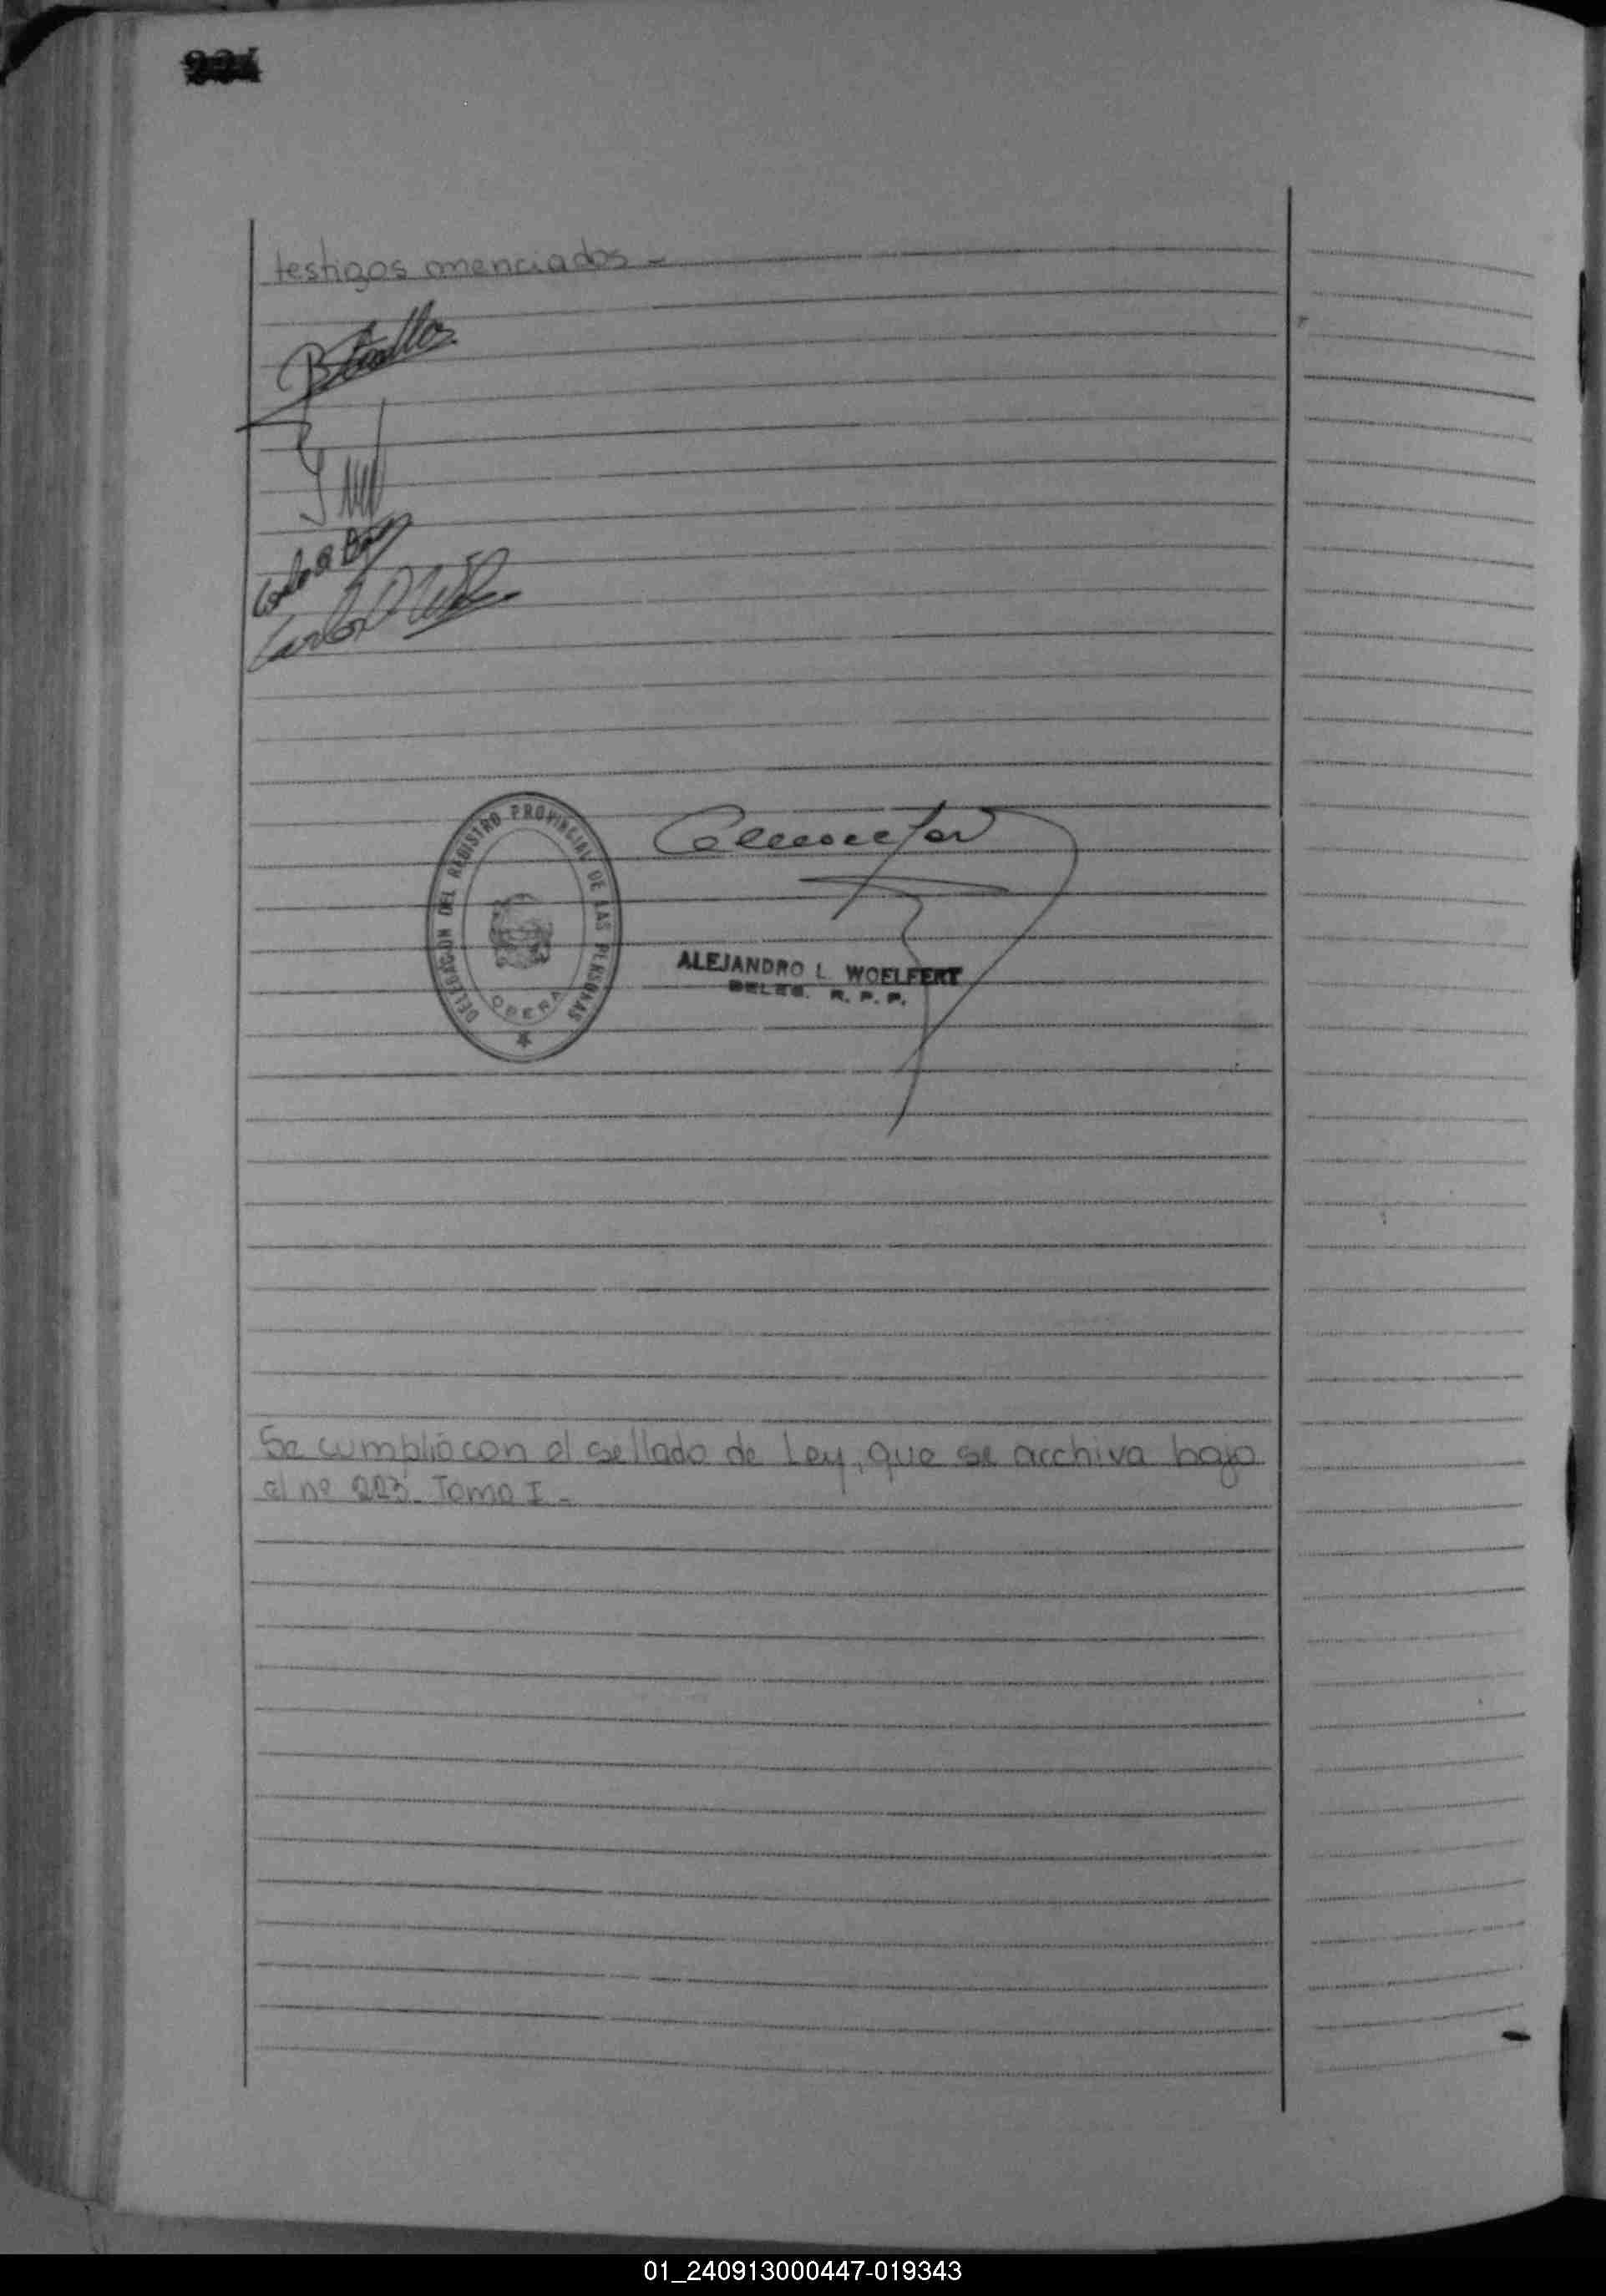 testigos menciados -
DELEGACION DEL REGISTRO PROVINCIAL DE LAS PERSONAS
OBERA
ALEJANDRO L. WOELFERT
DELEG. R. P. P.
Se cumplió con el sellado de Ley, que se archiva bajo
el nº 223. Tomo I -
01_240913000447-019343